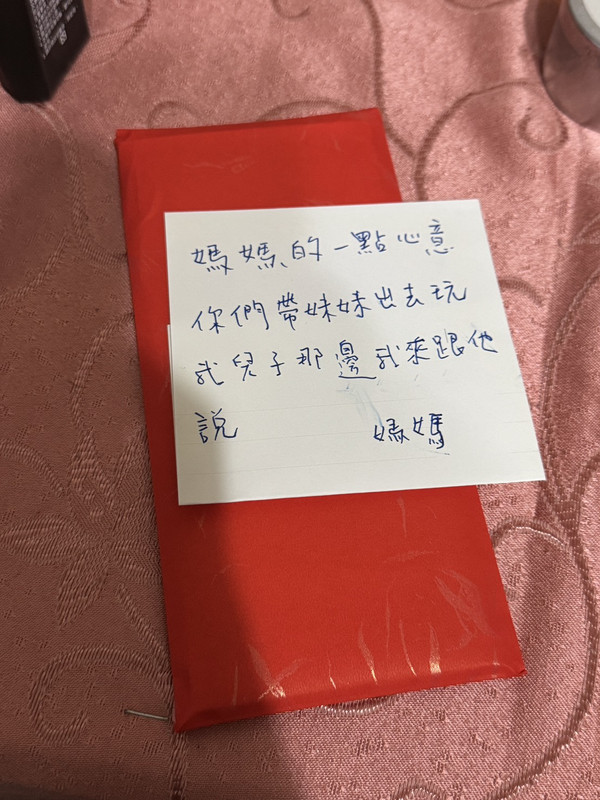 媽媽的一點心意
你們帶妹妹出去玩
我兒子那邊我來跟他
說 媽媽